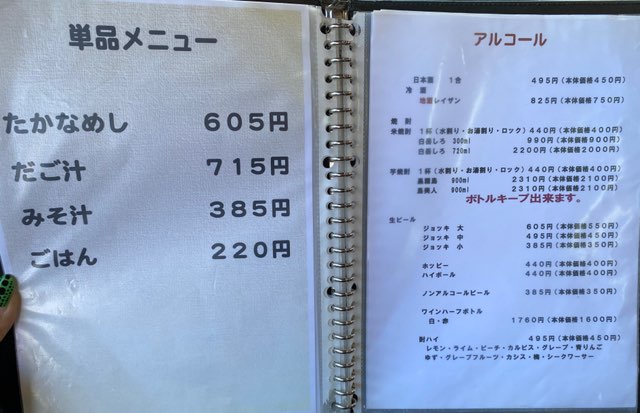 単品メニュー
たかなめし 605円
だご汁 715円
みそ汁 385円
ごはん 220円
アルコール
日本酒 1合 495円(本体価格450円)
冷酒
地酒レイザン 825円(本体価格750円)
焼酎
米焼酎 1杯(水割り・お湯割り・ロック)440円(本体価格400円)
白岳しろ 300ml 990円(本体価格900円)
白岳しろ 720ml 2200円(本体価格2000円)
芋焼酎 1杯(水割り・お湯割り・ロック)440円(本体価格400円)
黒霧島 900ml 2310円(本体価格2100円)
島美人 900ml 2310円(本体価格2100円)
ボトルキープ出来ます。
生ビール
ジョッキ 大 605円(本体価格550円)
ジョッキ 中 495円(本体価格450円)
ジョッキ 小 385円(本体価格350円)
ホッピー 440円(本体価格400円)
ハイボール 440円(本体価格400円)
ノンアルコールビール 385円(本体価格350円)
ワインハーフボトル
白・赤 1760円(本体価格1600円)
酎ハイ 495円(本体価格450円)
レモン・ライム・ピーチ・カルピス・グレープ・青りんご
ゆず・グレープフルーツ・カシス・梅・シークワーサー